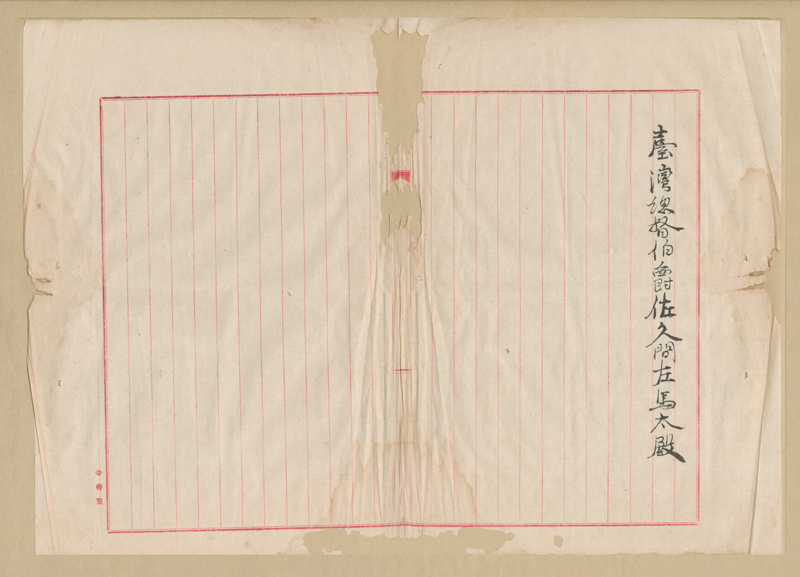 臺灣總督伯爵佐久間左馬太殿